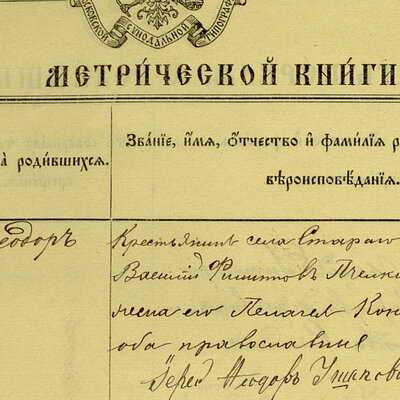 МОСКОВСКОЙ СУНОДАЛЬНОЙ ТИПОГРАФ
МЕТРИ́ЧЕСКОЙ КНИ́ГИ
А̀ РОДИ́ВШИХСѦ.
ЗВА́НІЕ, И҆́МѦ, Ѻ҆́ТЧЕСТВО И҆ ФАМИ́ЛІѦ Р
ВѢРОИСПОВѢ́ДАНІѦ.
еодоръ
Крестьянинъ села Стараго
Василій Филиповъ Пчелк
жена его Пелагея Кон
оба православные
Іерей Ѳеодоръ Ушаков